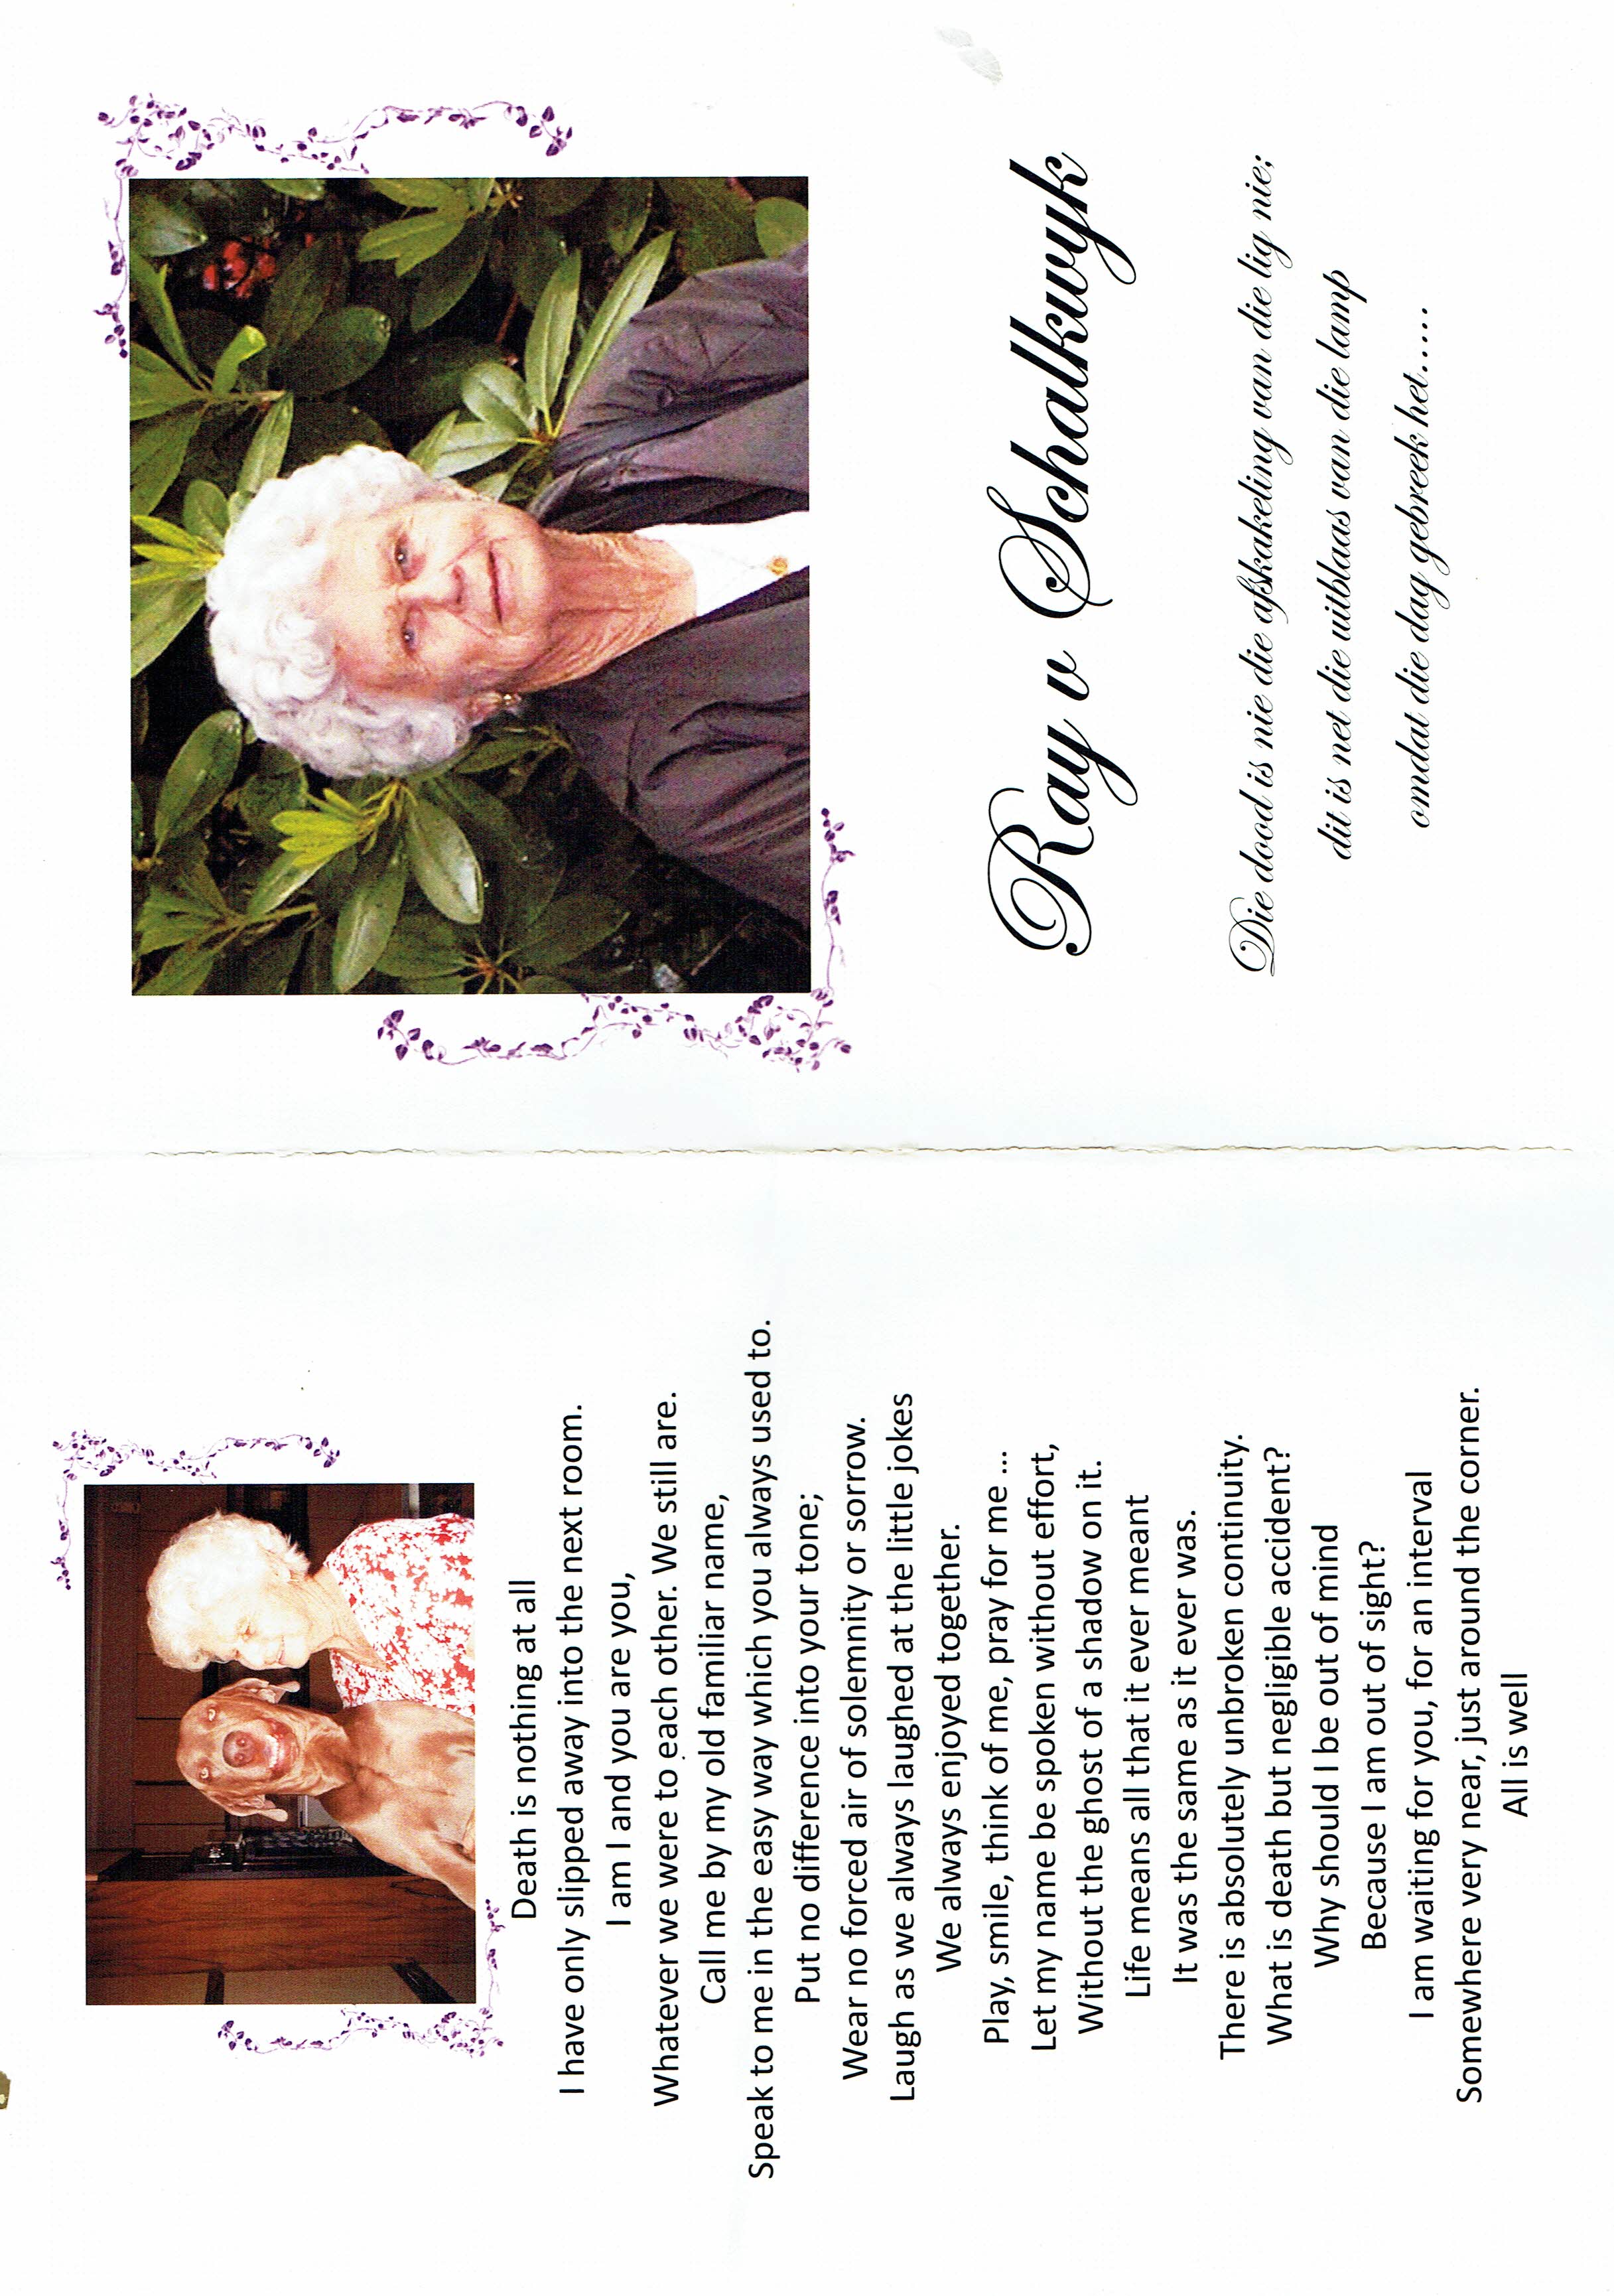 Death is nothing at all
I have only slipped away into the next room.
I am I and you are you,
Whatever we were to each other. We still are.
Call me by my old familiar name,
Speak to me in the easy way which you always used to.
Put no difference into your tone;
Wear no forced air of solemnity or sorrow.
Laugh as we always laughed at the little jokes
We always enjoyed together.
Play, smile, think of me, pray for me ...
Let my name be spoken without effort,
Without the ghost of a shadow on it.
Life means all that it ever meant
It was the same as it ever was.
There is absolutely unbroken continuity.
What is death but negligible accident?
Why should I be out of mind
Because I am out of sight?
I am waiting for you, for an interval
Somewhere very near, just around the corner.
All is well
Ray v Schalkwyk
Die dood is nie die afskakeling van die lig nie;
dit is net die uitblaas van die lamp
omdat die dag gebreek het.....